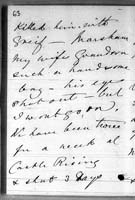 65
Killed him with
Grief — Marsham
my wife's Grandson,
such a handsome
boy — his eye
shot out — but
I wont go on.
We have been twice
for a week at
Castle Rising
& about 3 days